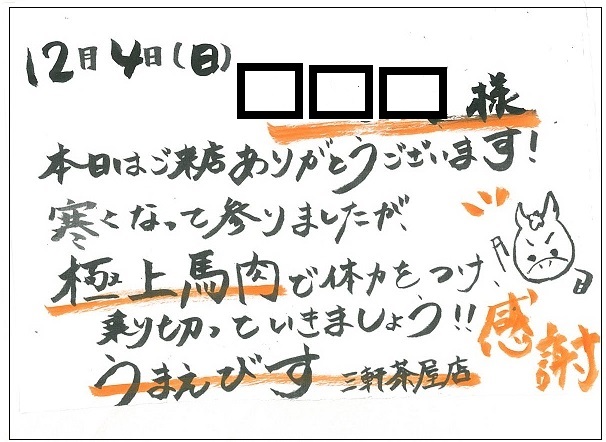 12月4日(日)
□□□様
本日はご来店ありがとうございます!
寒くなって参りましたが、
極上馬肉で体力をつけ、
乗り切っていきましょう!!
うまえびす 三軒茶屋店
感謝